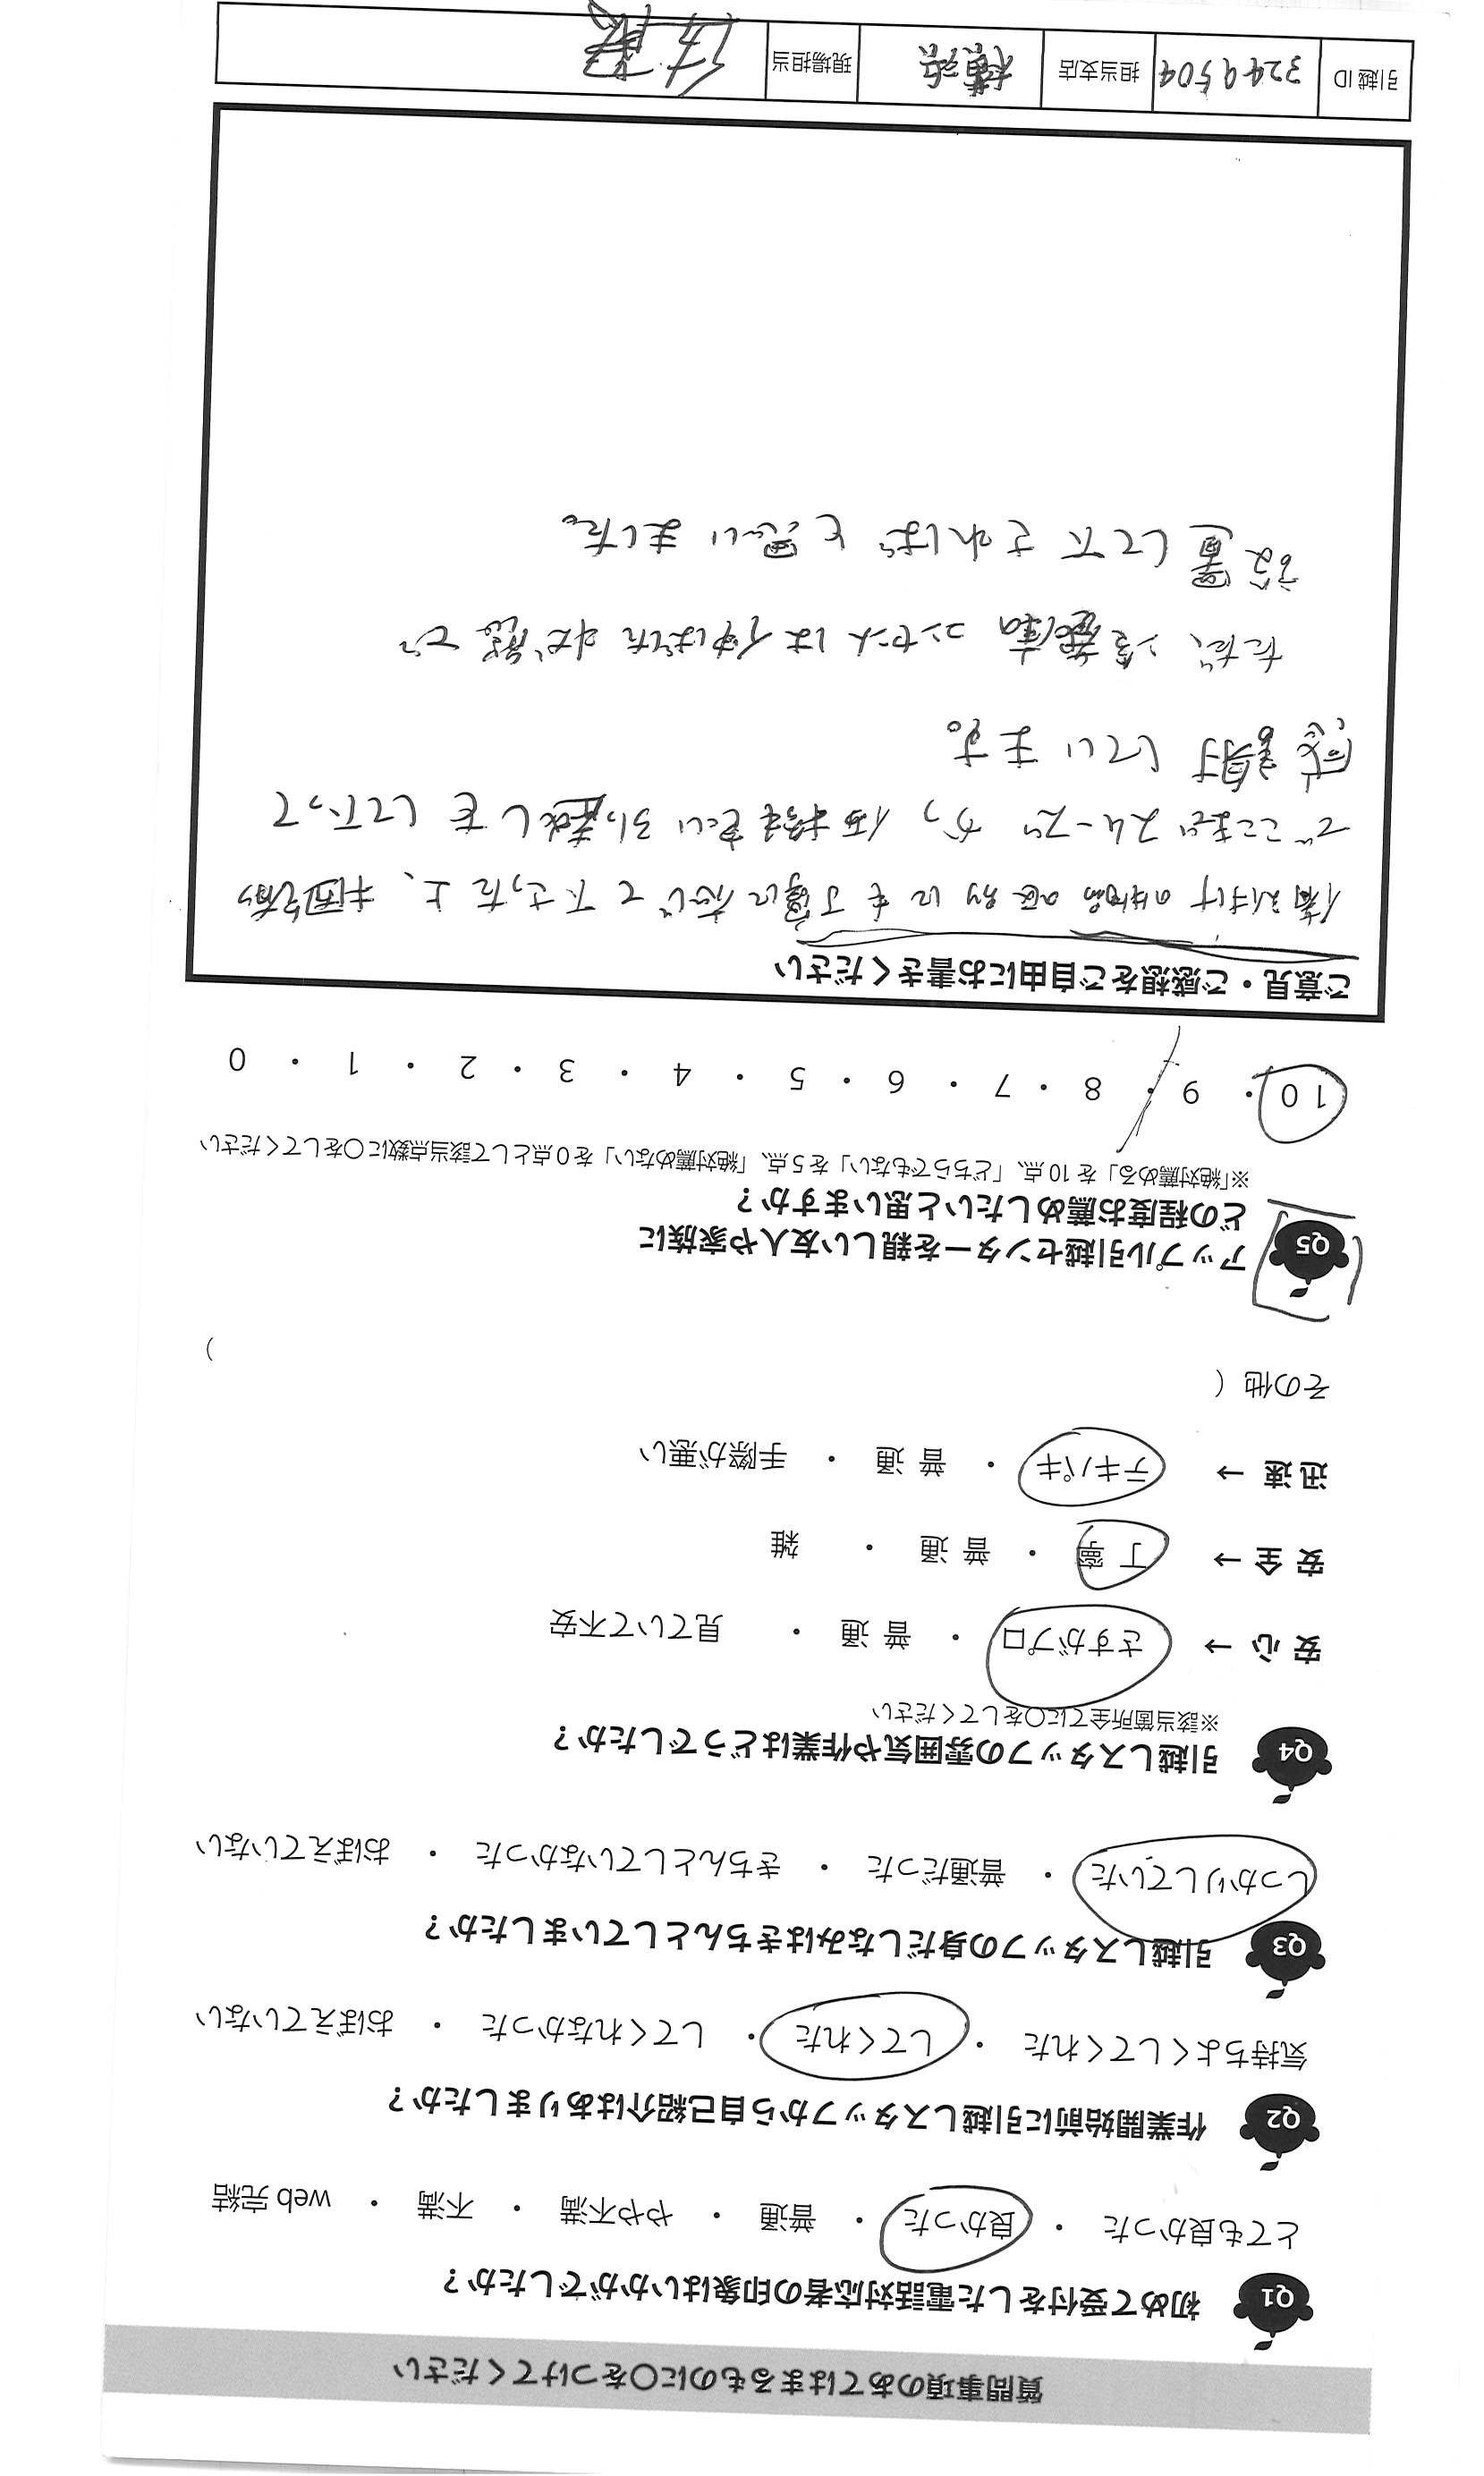 質問事項のあてはまるものに〇をつけてください
Q1 初めて受付をした電話対応者の印象はいかがでしたか？
とても良かった ・ 良かった ・ 普通 ・ やや不満 ・ 不満 ・ web 完結
Q2 作業開始前に引越しスタッフから自己紹介はありましたか？
気持ちよくしてくれた ・ してくれた ・ してくれなかった ・ おぼえていない
Q3 引越しスタッフの身だしなみはきちんとしていましたか？
しっかりしていた ・ 普通だった ・ きちんとしていなかった ・ おぼえていない
Q4 引越しスタッフの雰囲気や作業はどうでしたか？
※該当箇所全てに〇をしてください
安 心 → さすがプロ ・ 普 通 ・ 見ていて不安
安 全 → 丁 寧 ・ 普 通 ・ 雑
迅 速 → テキパキ ・ 普 通 ・ 手際が悪い
その他（ ）
Q5 アップル引越センターを親しい友人や家族に
どの程度お薦めしたいと思いますか？
※「絶対薦める」を 10 点、「どちらでもない」を 5 点、「絶対薦めない」を 0 点として該当点数に〇をしてください
10 ・ 9 ・ 8 ・ 7 ・ 6 ・ 5 ・ 4 ・ 3 ・ 2 ・ 1 ・ 0
ご意見・ご感想をご自由にお書きください
の物品の区別にも丁寧に応じて下さった上、
ここまでスムーズ かつ 気持ちいい引っ越しをして下って
感謝しています。
ただ、冷蔵庫のコンセントは伸ばした状態で
設置して下されば と思いました。
引越 ID 3249504 担当支店 横浜 現場担当